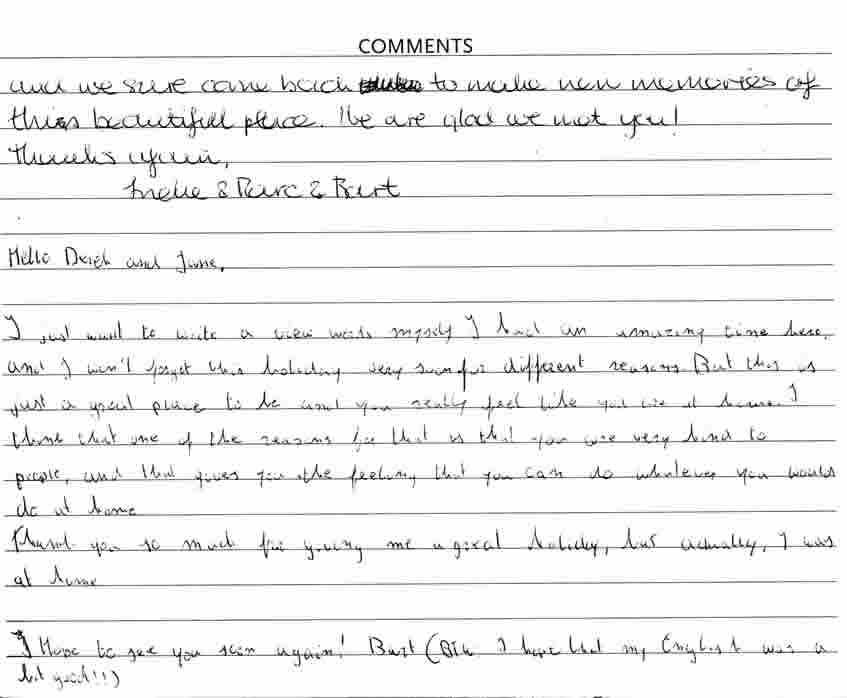 COMMENTS
and we sure come back to make new memories of
this beautifull place. We are glad we met you!
Thanks again,
& Bart
Hello and June,
I just want to write a view words myself I had an amazing time here,
and I won't forget this holiday very soon for different reasons. But this is
just a great place to be and you really feel like you are at home. I
think that one of the reasons for that is that you are very kind to
people, and that gives you the feeling that you can do whatever you would
do at home
Thank you so much for giving me a great holiday, but actually, I was
at home
I Hope to see you soon again! Bart (Btw I hope that my English was a
bit good!!)